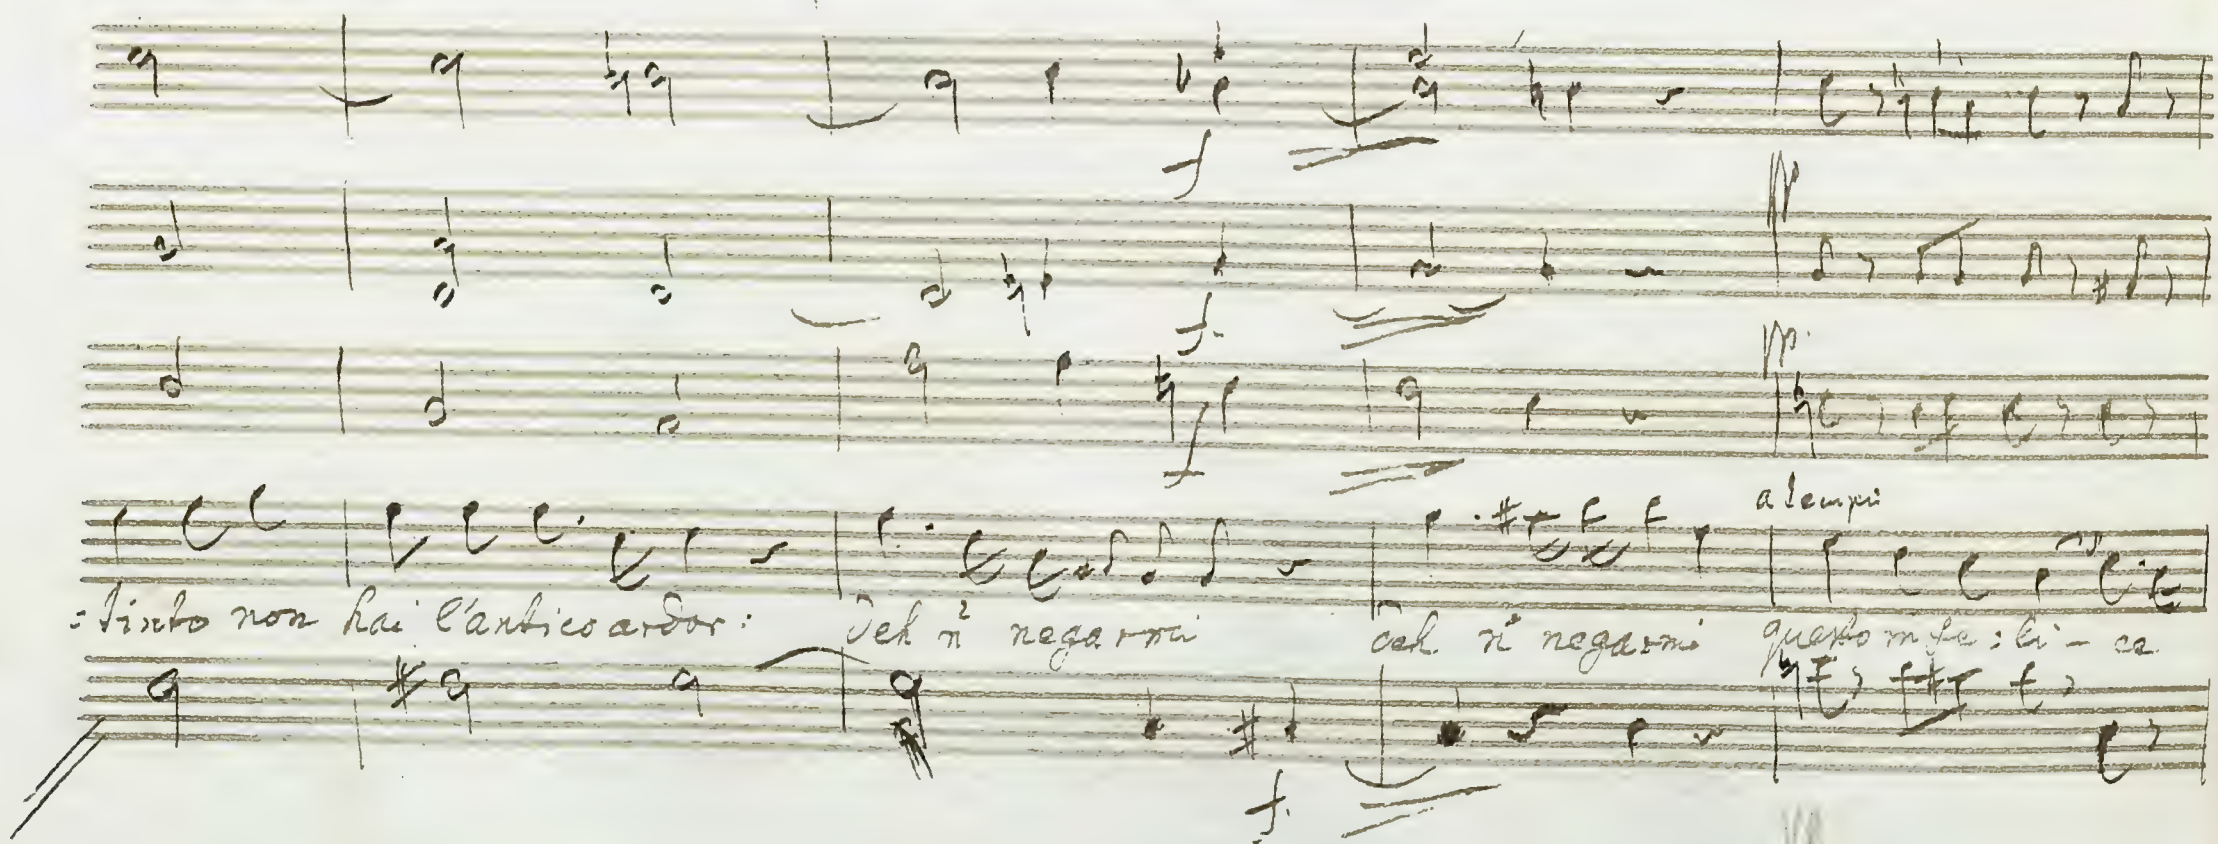 f
pp
f.
pp.
f
a tempo
:stinto non hai l'antico ardor: Deh ñ negarmi deh ñ negarmi questo infe:li-ce
f.